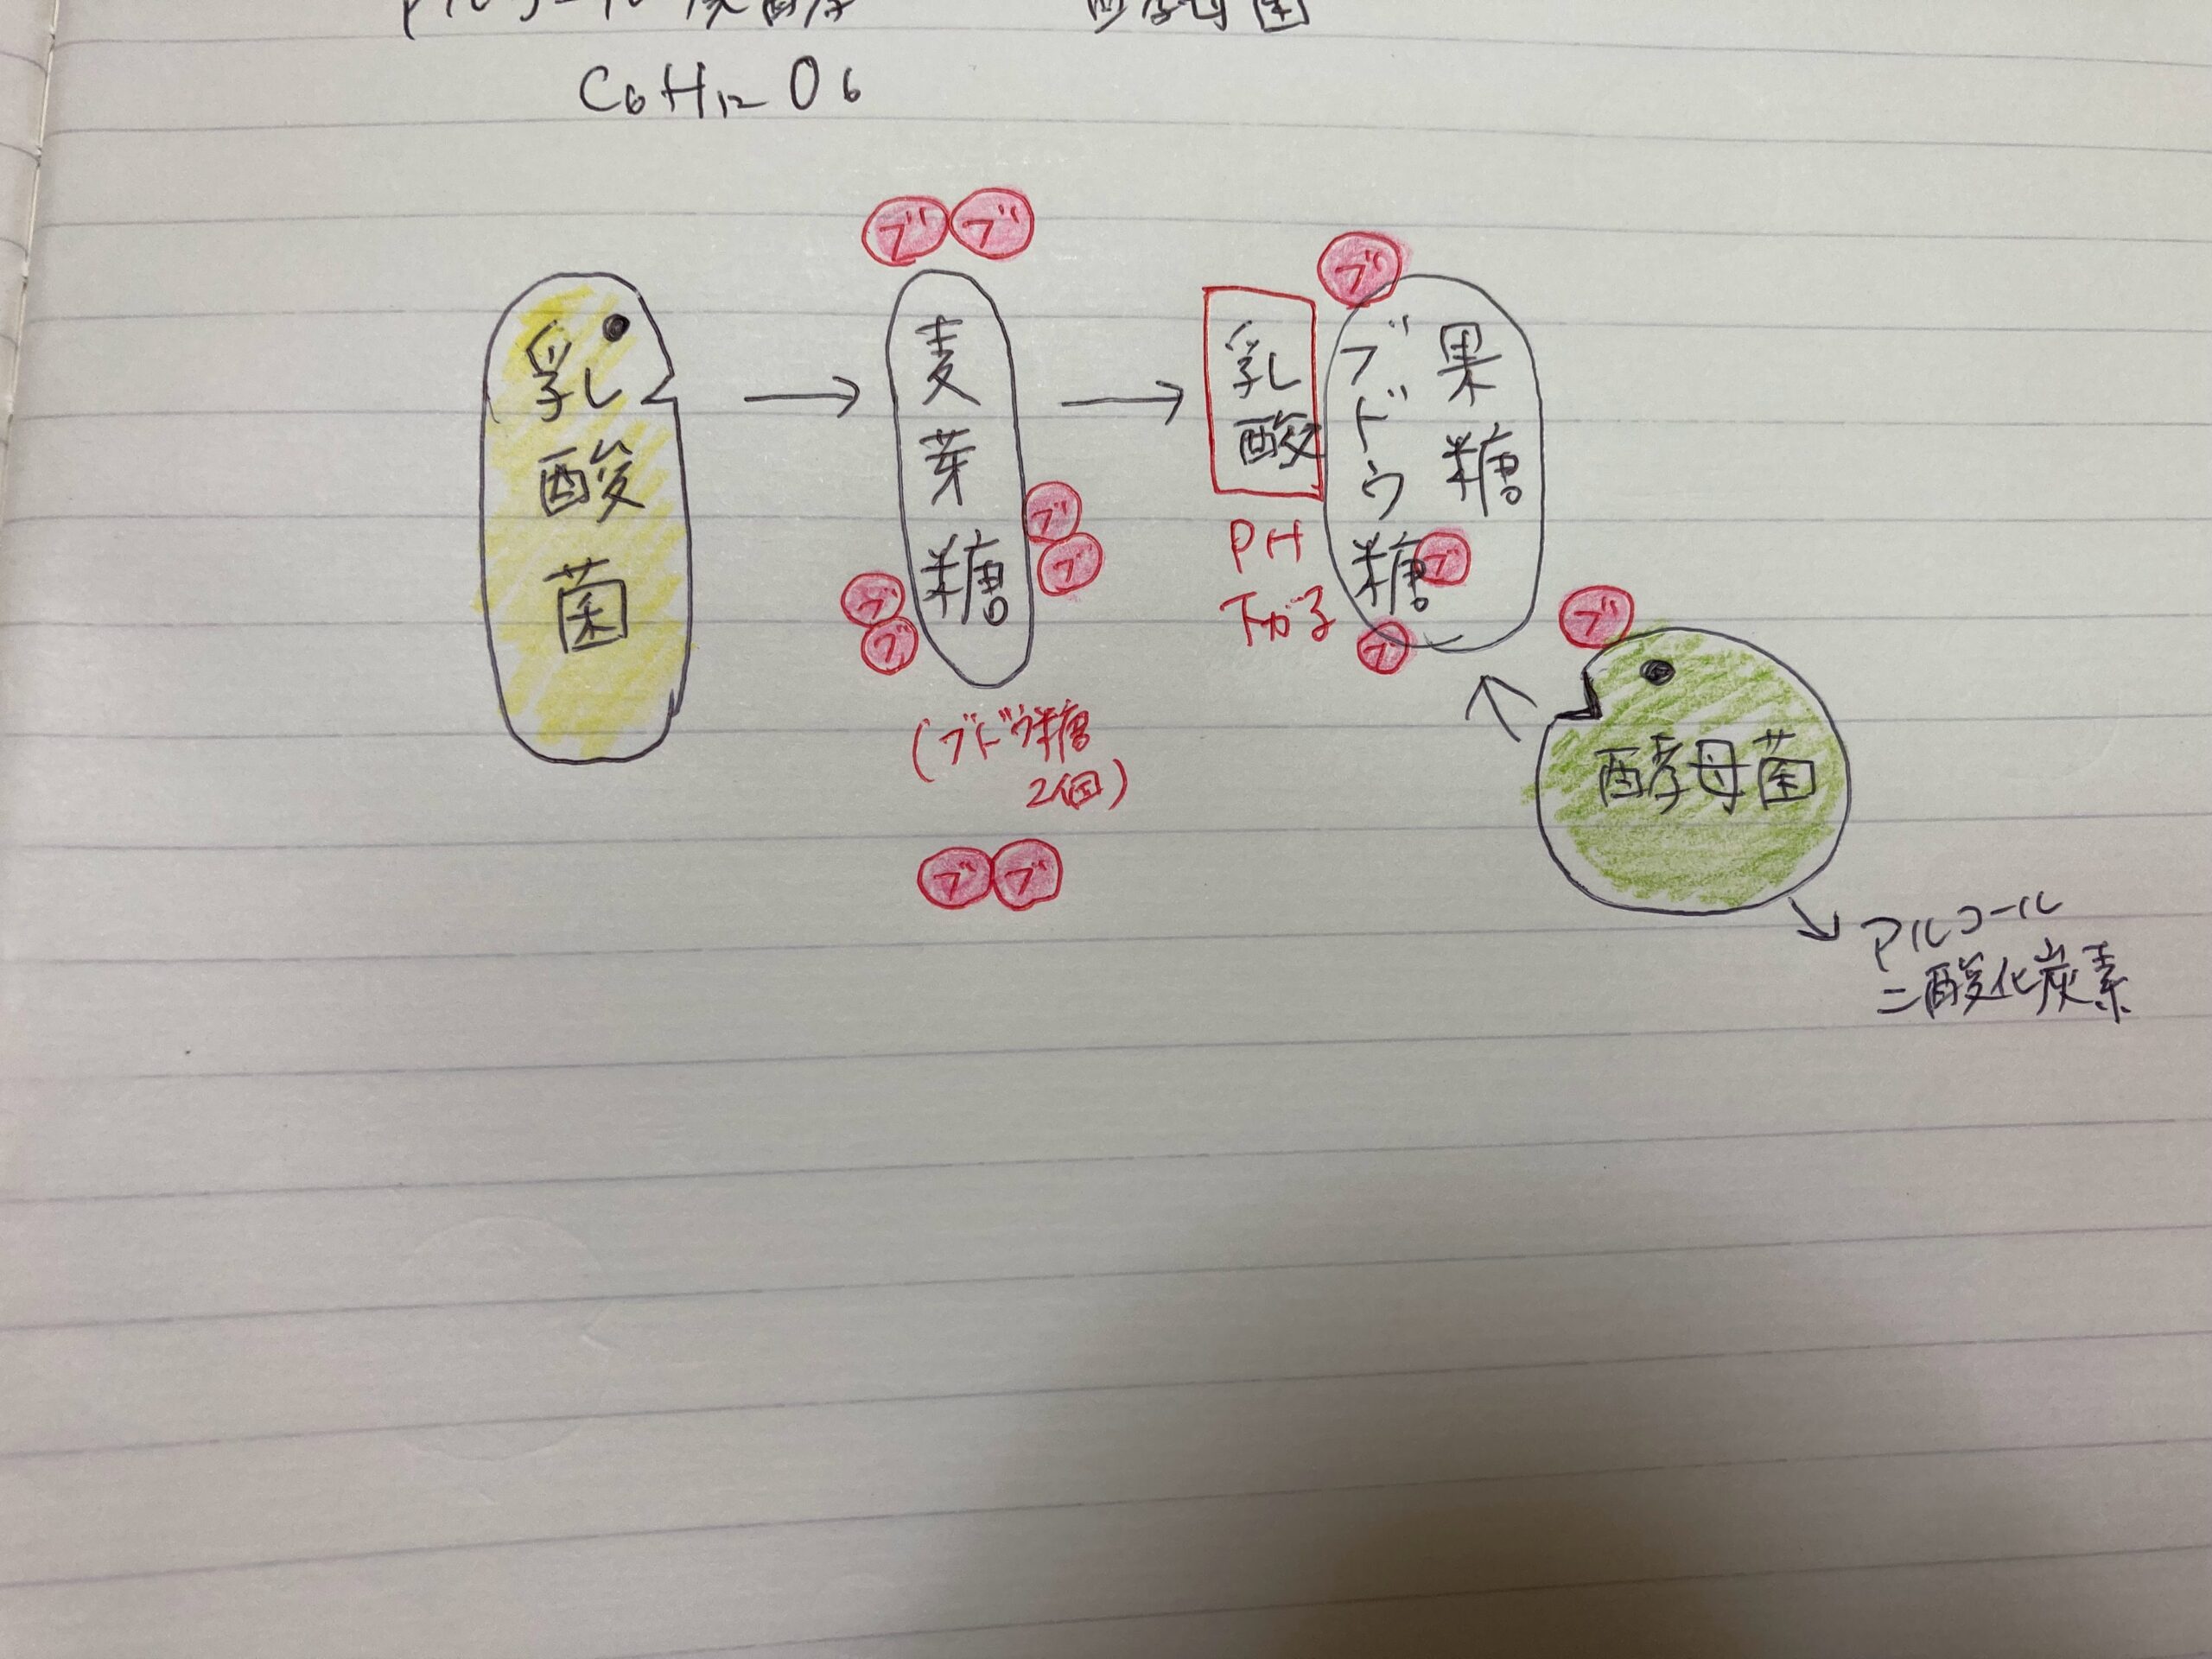 アルコール発酵 酵母菌
C6H12O6
ブ ブ
ブ
乳酸菌
麦芽糖
乳酸
ブドウ糖
果糖
ブ
ブ
ブ
ブ
PH
下がる
ブ
ブ
ブ
(ブドウ糖
2個)
酵母菌
ブ ブ
アルコール
二酸化炭素